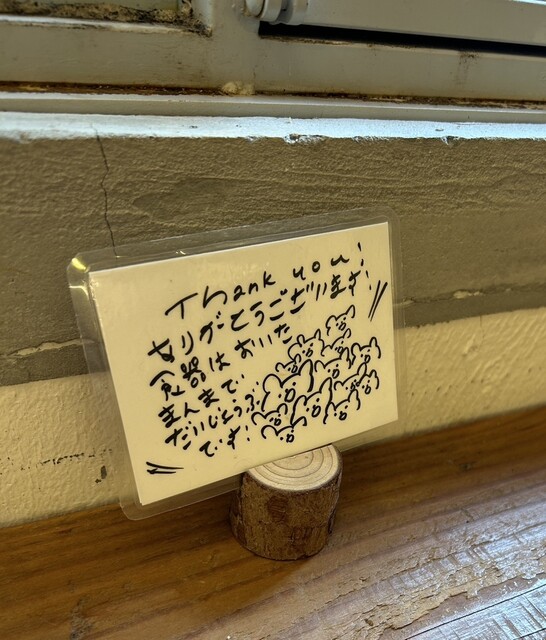 Thank you!
ありがとうございます!
食器はおいた
まんまで
だいじょうぶ
です!